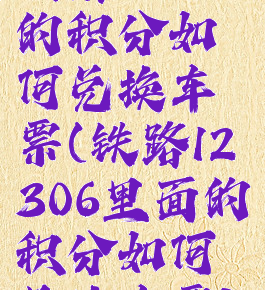 的积分如
何兑换车
票(铁路12
306里面的
积分如何